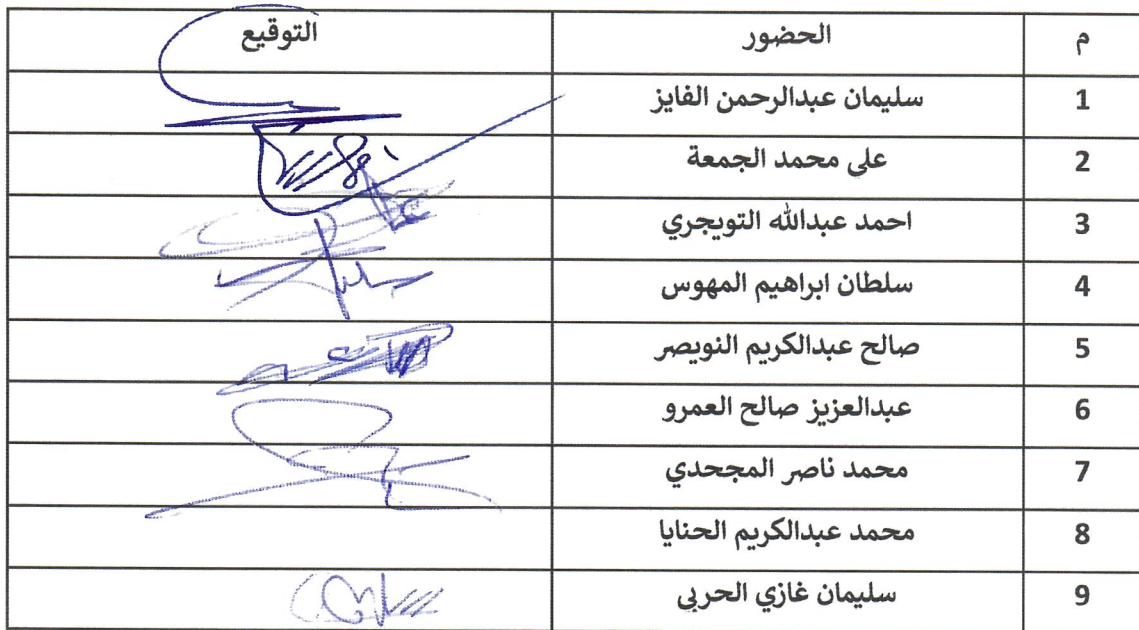 م الحضور التوقيع
1 سليمان عبدالرحمن الفايز
2 على محمد الجمعة
3 احمد عبدالله التويجري
4 سلطان ابراهيم المهوس
5 صالح عبدالكريم النويصر
6 عبدالعزيز صالح العمرو
7 محمد ناصر المجحدي
8 محمد عبدالكريم الحنايا
9 سليمان غازي الحربي